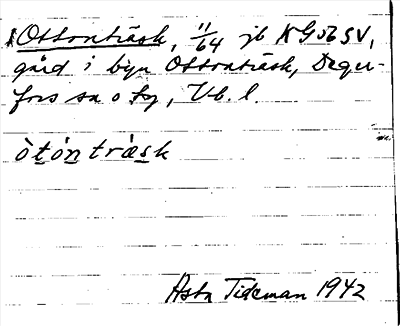 Ottonträsk, 11/64 jb KGobSV,
gård i byn Ottonträsk, Deger-
fors sn o tg, Vb. l.
òtòn tràsk
Asta Tideman 1942